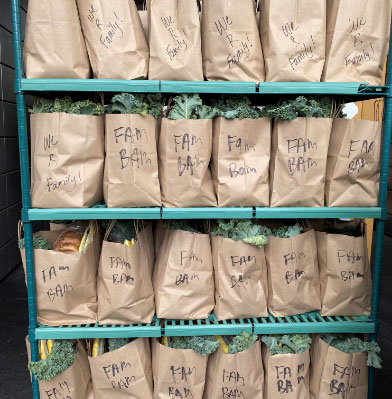 We
R
Family!
We
R
Family!
We
R
Family!
We
R
Family!
We
R
Family!
We
R
Family!
FAM
BAM
FAM
BAM
Fam
Bam
FAM
BAM
FAM
BAM
FAM
BAM
FAM
BAM
FAM
BAM
FAM
BAM
FAM
BAM
FAM
BAM
FAM
BAM
FAM
BAM
FAM
BAM
FAM
BAM
FAM
BAM
FAM
BAM